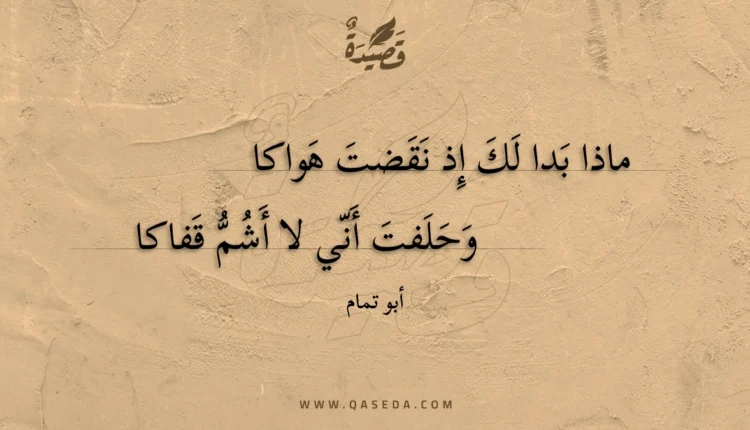 قَصِيْدَةٌ
ماذا بَدا لَكَ إِذ نَقَضتَ هَواكا
وَحَلَفتَ أَنّي لا أَشُمُّ قَفاكا
أبو تمام
WWW.QASEDA.COM